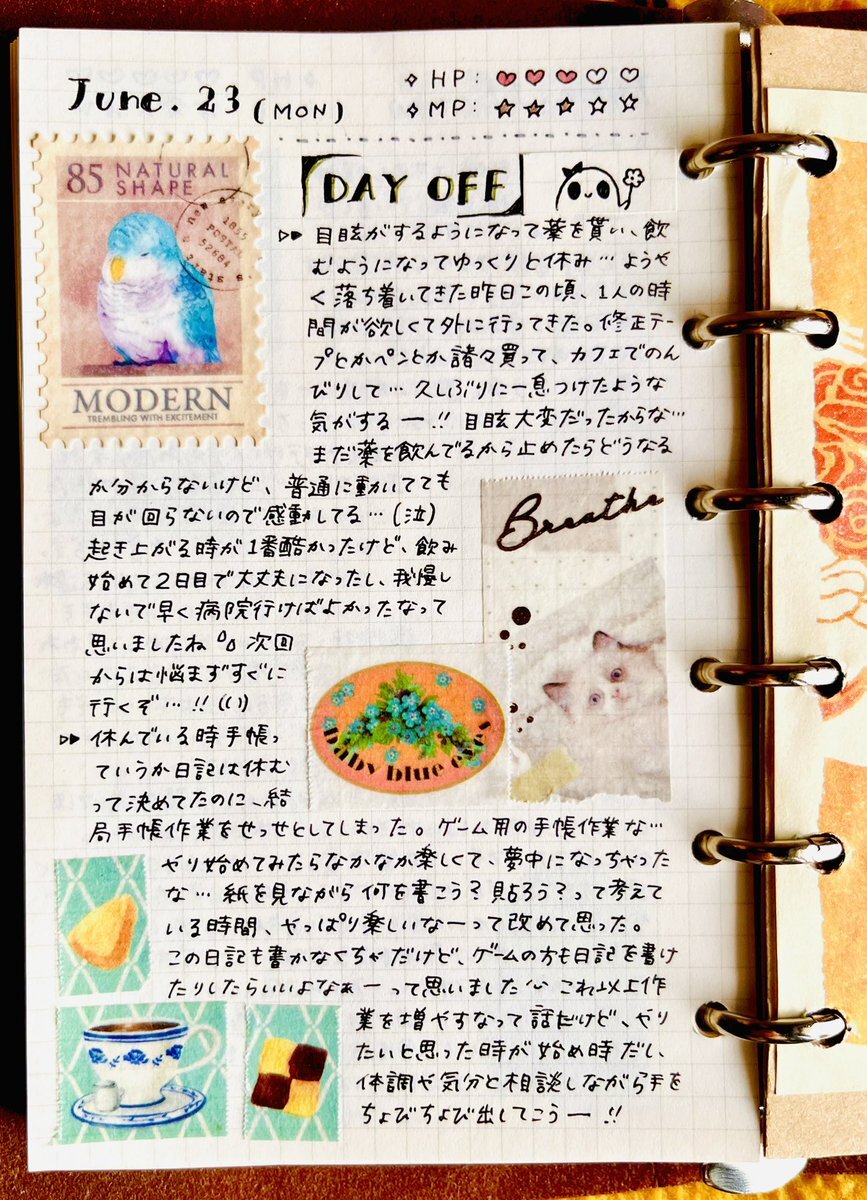 June. 23 (MON)
✧ HP: ♥♥♥♡♡
✧ MP: ★★★☆☆
85 NATURAL
SHAPE
MODERN
TREMBLING WITH EXCITEMENT
DAY OFF
▷▷ 目眩がするようになって薬を貰い、飲
むようになってゆっくりと休み… ようや
く落ち着いてきた昨日この頃、1人の時
間が欲しくて外に行ってきた。修正テー
プとかペンとか諸々買って、カフェでのん
びりして… 久しぶりに一息つけたような
気がするー!! 目眩大変だったからな…
まだ薬を飲んでるから止めたらどうなる
か分からないけど、普通に動いてても
目が回らないので感動してる…(泣)
起き上がる時が1番酷かったけど、飲み
始めて2日目で大丈夫になったし、我慢し
ないで早く病院行けばよかったなって
思いましたね 次回
からは悩まずすぐに
行くぞ…!!
Breathe
baby blue eyes
▷▷ 休んでいる時手帳っ
ていうか日記は休む
って決めてたのに、結
局手帳作業をせっせとしてしまった。ゲーム用の手帳作業な…
やり始めてみたらなかなか楽しくて、夢中になっちゃった
な… 紙を見ながら何を書こう?貼ろう?って考えて
いる時間、やっぱり楽しいなーって改めて思った。
この日記も書かなくちゃだけど、ゲームの方も日記を書け
たりしたらいいよなぁーって思いました これ以上作
業を増やすなって話だけど、やり
たいと思った時が始め時だし、
体調や気分と相談しながら手を
ちょびちょび出してこうー!!